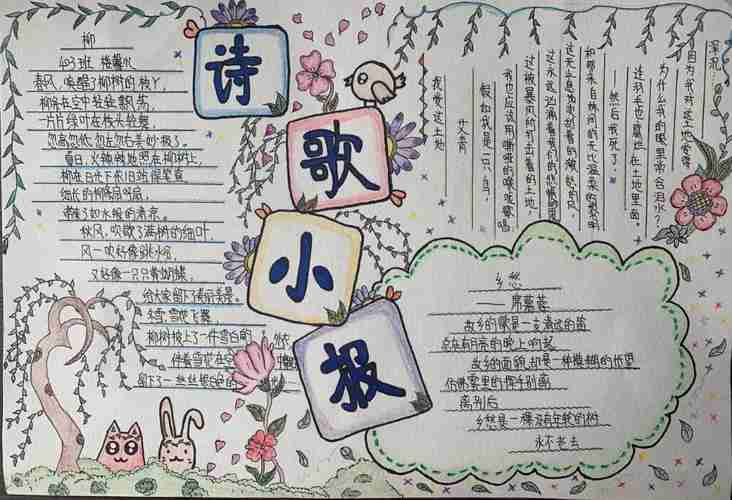 诗
歌
小
报
柳
403班
春风,唤醒了柳树的枝丫,
柳条在空中轻轻飘荡,
一片片绿叶在枝头轻舞,
忽高忽低,忽左忽右美妙极了。
夏日,火辣辣地照在柳树上,
柳在烈日下依旧站
细长的柳条
带着了如水般的清凉。
秋风,吹散了满树的细叶,
风一吹好像
又好像一只只黄蝴蝶,
给大家留下了
冬雪,雪花飞舞
柳树披上了一件雪白的
伴着雪花在空
留下了一丝丝银色的
我爱这土地
艾青
假如我是一只鸟,
我也应该用嘶哑的喉咙歌唱
这被暴风雨所打击着的土地,
这永远汹涌着我们的悲愤的河
这无止息地吹刮着的激怒的风,
和那来自林间的无比温柔的黎明
——然后我死了,
连羽毛也腐烂在土地里面。
为什么我的眼里常含泪水?
因为我对这土地爱得
深沉……
乡愁
——席慕蓉
故乡的歌是一支清远的笛
总在有月亮的晚上响起
故乡的面貌却是一种模糊的怅望
仿佛雾里的挥手别离
离别后
乡愁是一棵没有年轮的树
永不老去